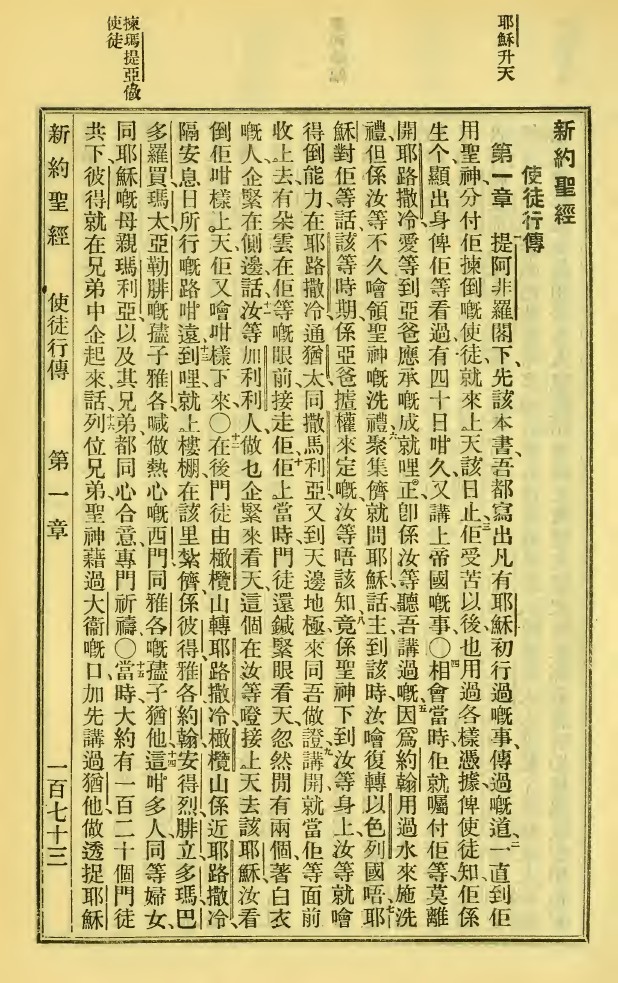 耶穌升天
揀瑪提亞做
使徒
新約聖經
使徒行傳
第一章 提阿非羅閣下、先該本書、吾都寫出凡有耶穌初行過嘅事、傳過嘅道、二一直到佢
用聖神分付佢揀倒嘅使徒、就來上天該日止、三佢受苦以後也用過各樣憑據俾使徒知、佢係
生个、顯出身俾佢等看過、有四十日咁久、又講上帝國嘅事、〇四相會當時、佢就囑付佢等、莫離
開耶路撒冷、愛等到亞爸應承嘅成就哩正、即係汝等聽吾講過嘅、五因爲約翰用過水來施洗
禮、但係汝等不久會領聖神嘅洗禮、六聚集儕就問耶穌話、主到該時汝噲復轉以色列國唔、七耶
穌對佢等話、該等時期係亞爸𢬿權來定嘅、汝等唔該知、八竟係聖神下到汝等身上、汝等就噲
得倒能力、在耶路撒冷、通猶太、同撒馬利亞、又到天邊地極來同吾做證、九講開就當佢等面前
收上去、有朵雲在佢等嘅眼前接走佢、十佢上當時、門徒還鍼緊眼看天、忽然閒有兩個著白衣
嘅人企緊在側邊、十一話汝等加利利人、做乜企緊來看天、這個在汝等噔接上天去該耶穌、汝看
倒佢咁樣上天、佢又噲咁樣下來、〇十二在後門徒由橄欖山轉耶路撒冷、橄欖山係近耶路撒冷、
隔安息日所行嘅路咁遠、十三到哩就上樓棚、在該里紮儕係彼得、雅各、約翰、安得烈、腓立、多瑪、巴
多羅買、瑪太、亞勒腓嘅孻子雅各、喊做熱心嘅西門、同雅各嘅孻子猶他、十四這咁多人、同等婦女、
同耶穌嘅母親瑪利亞、以及其兄弟、都同心合意專門祈禱、〇十五當時大約有一百二十個門徒
共下、彼得就在兄弟中企起來話、十六列位兄弟、聖神藉過大衞嘅口、加先講過猶他做透捉耶穌
新約聖經 使徒行傳 第一章 一百七十三